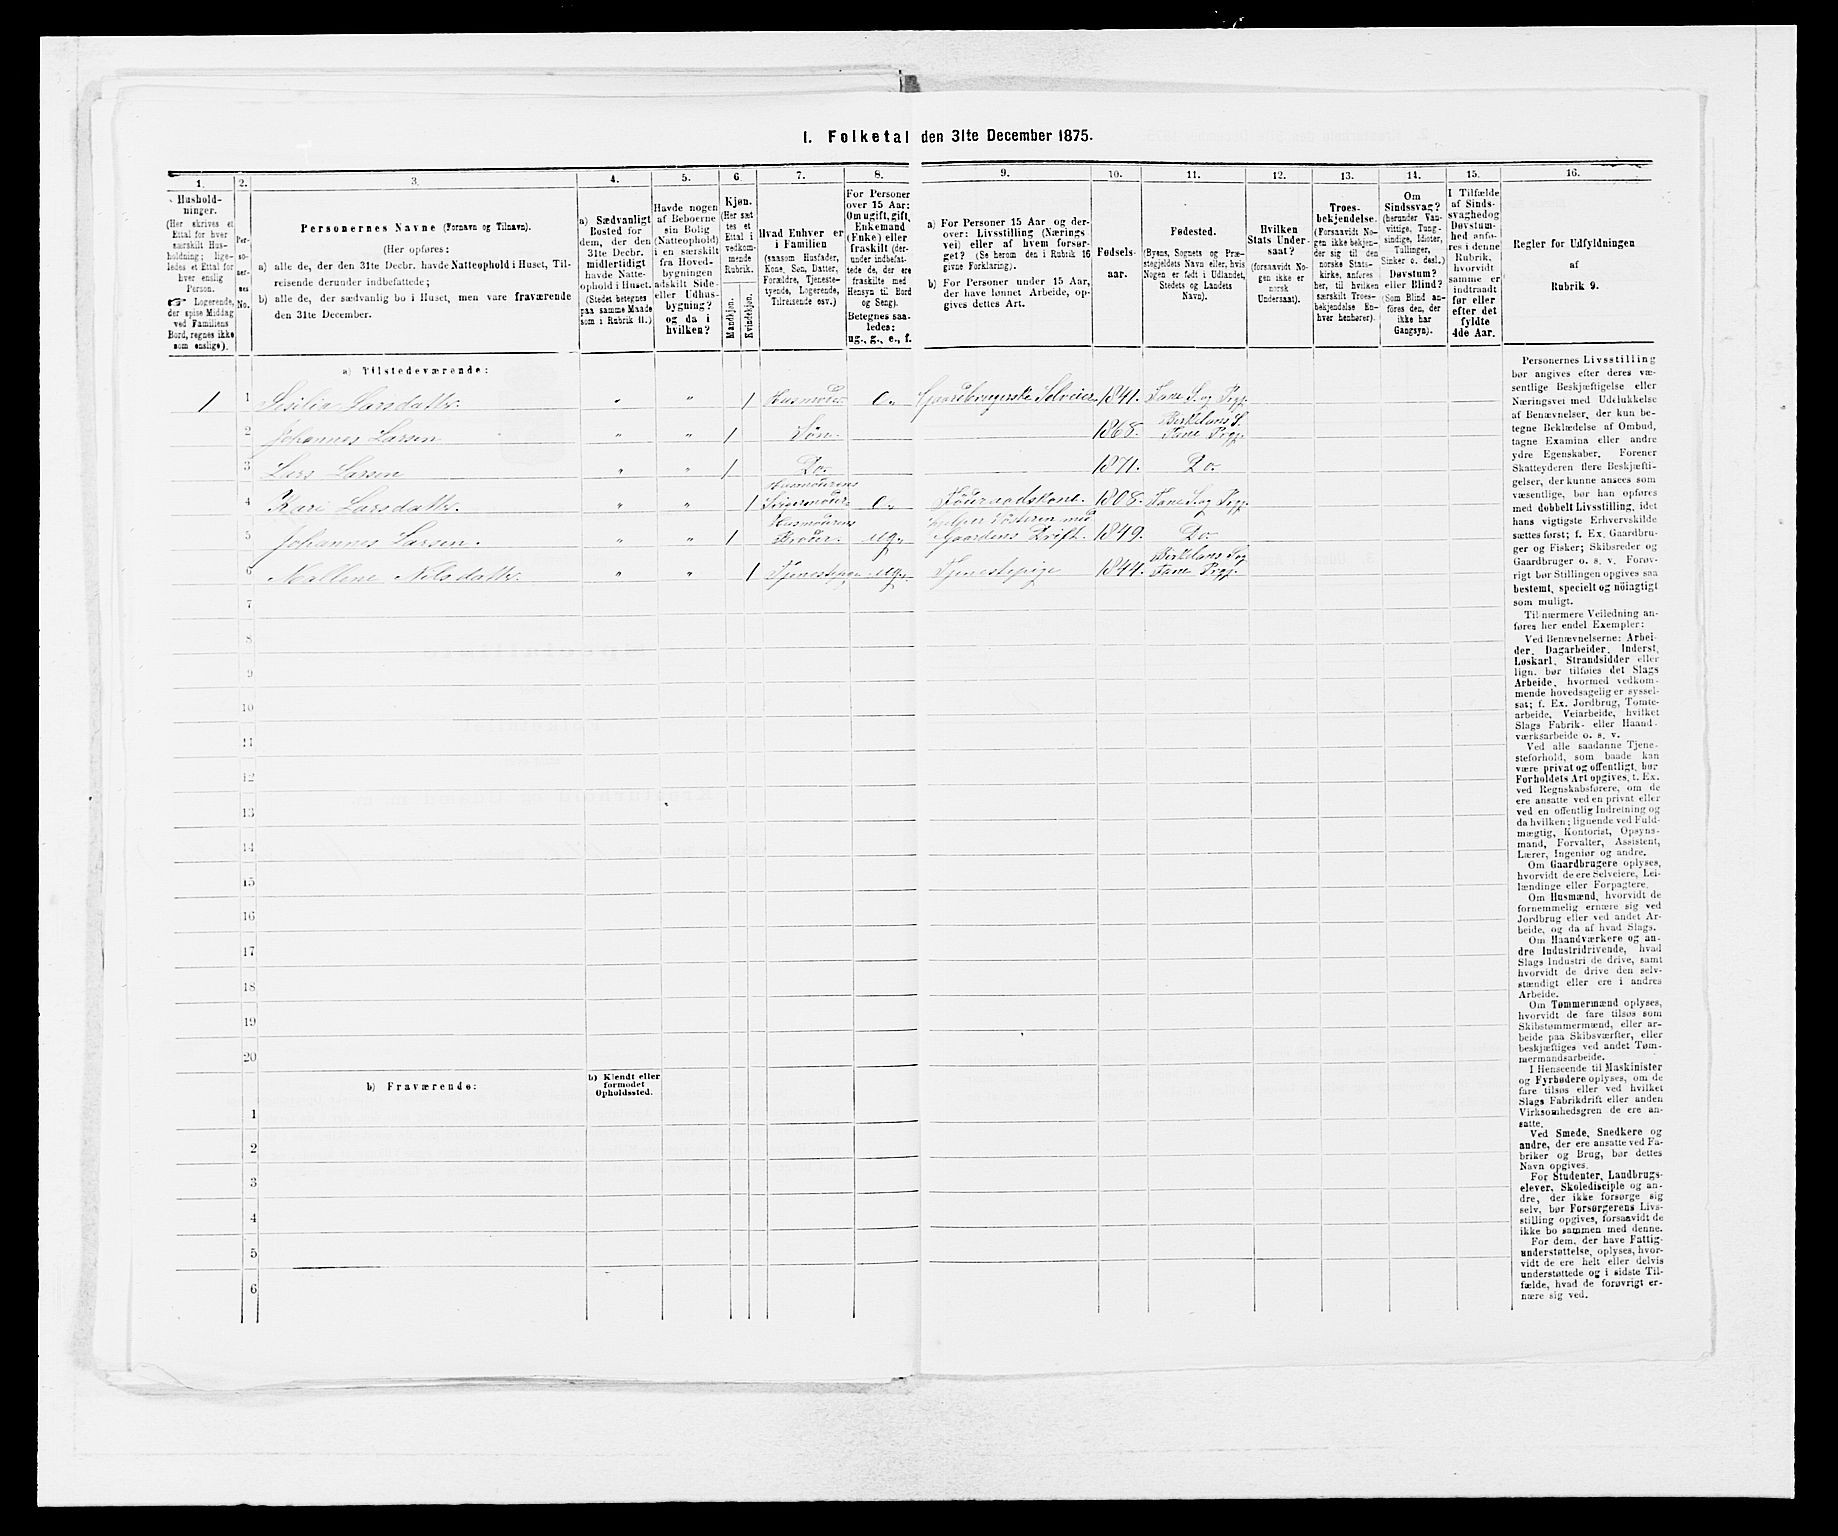 I. Folketal den 31te December 1875.
1. 2. 3. 4. 5. 6. 7. 8. 9. 10. 11. 12. 13. 14. 15. 16.
Hushold-
ninger.
(Her skrives et
Ettal for hver
særskilt Hus-
holdning; lige-
ledes et Ettal for
hver enslig
Person.
☞ Logerende,
der spise Middag
ved Familiens
Bord, regnes ikke
som enslige).
Per-
so-
ner-
nes
No.
Personernes Navne (Fornavn og Tilnavn).
(Her opføres:
a) alle de, der den 31te Decbr. havde Natteophold i Huset, Til-
reisende derunder indbefattede;
b) alle de, der sædvanlig bo i Huset, men vare fraværende
den 31te December.
a) Sædvanligt
Bosted for
dem, der den
31te Decbr.
midlertidigt
havde Natte-
ophold i Huset.
(Stedet betegnes
paa samme Maade
som i Rubrik 11.)
Havde nogen
af Beboerne
sin Bolig
(Natteophold)
i en særskilt
fra Hoved-
bygningen
adskilt Side-
eller Udhus-
bygning?
og da i
hvilken?
Kjøn.
(Her sæt
tes et
Ettal i
vedkom-
mende
Rubrik.
Mandkjøn.
Kvindekjøn.
Hvad Enhver er
i Familien
(saasom Husfader,
Kone, Søn, Datter,
Forældre, Tjeneste-
tyende, Logerende,
Tilreisende osv.)
For Personer
over 15 Aar:
Om ugift, gift,
Enkemand
(Enke) eller
fraskilt (der-
under indbefat-
tede de, der ere
fraskilte med
Hensyn til Bord
og Seng).
Betegnes saa-
ledes:
ug., g., e., f.
a) For Personer 15 Aar og der-
over: Livsstilling (Nærings
vei) eller af hvem forsør-
get? (Se herom den i Rubrik 16
givne Forklaring).
b) For Personer under 15 Aar,
der have lønnet Arbeide, op-
gives dettes Art.
Fødsels-
aar.
Fødested.
(Byens, Sognets og Præ-
stegjeldets Navn eller, hvis
Nogen er født i Udlandet,
Stedets og Landets
Navn).
Hvilken
Stats Under-
saat?
(forsaavidt No-
gen ikke er
norsk
Undersaat).
Troes-
bekjendelse.
(Forsaavidt No-
gen ikke bekjen-
der sig til den
norske Stats-
kirke, anføres
her, til hvilken
særskilt Troes-
bekjendelse En-
hver henhører).
Om
Sindssvag?
(herunder Van-
vittige, Tung-
sindige, Idioter,
Tullinger,
Sinker o. desl.)
Døvstum?
eller Blind?
(Som Blind an-
føres den, der
ikke har
Gangsyn).
I Tilfælde
af Sinds-
svaghed og
Døvstum-
hed anfø-
res i denne
Rubrik,
hvorvidt
samme er
indtraadt
før eller
efter det
fyldte
4de Aar.
Regler for Udfyldningen
af
Rubrik 9.
a) Tilstedeværende:
1 1 Sesilia Larsdatter. „ „ 1 Husmoder. e. Gaardbrugerske Selveier 1841. Fane S. og Prgj.
2 Johannes Larsen „ „ 1 Søn. 1868. Birkelans S. Fane Prgj.
3 Lars Larsen „ „ 1 Do. 1871. Do.
4 Kari Larsdatter. „ „ 1 Husmourens Svigermour. e. Föuraadskone. 1808. Fane S. og Prgj.
5 Johannes Larsen. „ „ 1 Husmourens Brour. ug. hjelper Søsteren med Gaardens Drift. 1849. Do.
6 Mallene Nilsdatter. „ „ 1 Tjenestepige ug. Tjenestepige 1844. Birkelans S. og Fane Prgj.
7
8
9
10
11
12
13
14
15
16
17
18
19
20
b) Fraværende:
b) Kjendt eller
formodet
Opholdssted.
1
2
3
4
5
6
Personernes Livsstilling
bør angives efter deres væ-
sentlige Beskjæftigelse eller
Næringsvei med Udelukkelse
af Benævnelser, der kun be-
tegne Beklædelse af Ombud,
tagne Examina eller andre
ydre Egenskaber. Forener
Skatteyderen flere Beskjæfti-
gelser, der kunne ansees som
væsentlige, bør han opføres
med dobbelt Livsstilling, idet
hans vigtigste Erhvervskilde
sættes først; f. Ex. Gaardbru-
ger og Fisker; Skibsreder og
Gaardbruger o. s. v. Forøv-
rigt bør Stillingen opgives saa
bestemt, specielt og nöiagtigt
som muligt.
Til nærmere Veiledning an-
føres her endel Exempler:
Ved Benævnelserne: Arbei-
der, Dagarbeider, Inderst,
Løskarl, Strandsidder eller
lign. bør tilføies det Slags
Arbeide, hvormed vedkom-
mende hovedsagelig er syssel-
sat; f. Ex. Jordbrug, Tomte-
arbeide, Veiarbeide, hvilket
Slags Fabrik- eller Haand-
værksarbeide o. s. v.
Ved alle saadanne Tjene-
steforhold, som baade kan
være privat og offentligt, bør
Forholdets Art opgives, t. Ex.
ved Regnskabsførere, om de
ere ansatte ved en privat eller
ved en offentlig Indretning og
da hvilken; lignende ved Fuld-
mægtig, Kontorist, Opsyns-
mand, Forvalter, Assistent,
Lærer, Ingeniør og andre.
Om Gaardbrugere oplyses,
hvorvidt de ere Selveiere, Lei-
lændinge eller Forpagtere.
Om Husmænd, hvorvidt de
fornemmelig ernære sig ved
Jordbrug eller ved andet Ar-
beide, og da af hvad Slags.
Om Haandværkere og an-
dre Industridrivende, hvad
Slags Industri de drive, samt
hvorvidt de drive den selv-
stændigt eller ere i andres
Arbeide.
Om Tømmermænd oplyses,
hvorvidt de fare tilsøs som
Skibstømmermænd, eller ar-
beide paa Skibsværfter, eller
beskjæftiges ved andet Tøm-
mermandsarbeide.
I Henseende til Maskinister
og Fyrbødere oplyses, om de
fare tilsøs eller ved hvilket
Slags Fabrikdrift eller anden
Virksomhedsgren de ere an-
satte.
Ved Smede, Snedkere og
andre, der ere ansatte ved Fa-
briker og Brug, bør dettes
Navn opgives.
For Studenter, Landbrugs-
elever, Skoledisciple og an-
dre, der ikke forsørge sig
selv, bør Forsørgerens Livs-
stilling opgives, forsaavidt de
ikke bo sammen med denne.
For dem, der have Fattig-
understøttelse, oplyses, hvor-
vidt de ere helt eller delvis
understøttede og i sidste Til-
fælde, hvad de forøvrigt er-
nære sig ved.